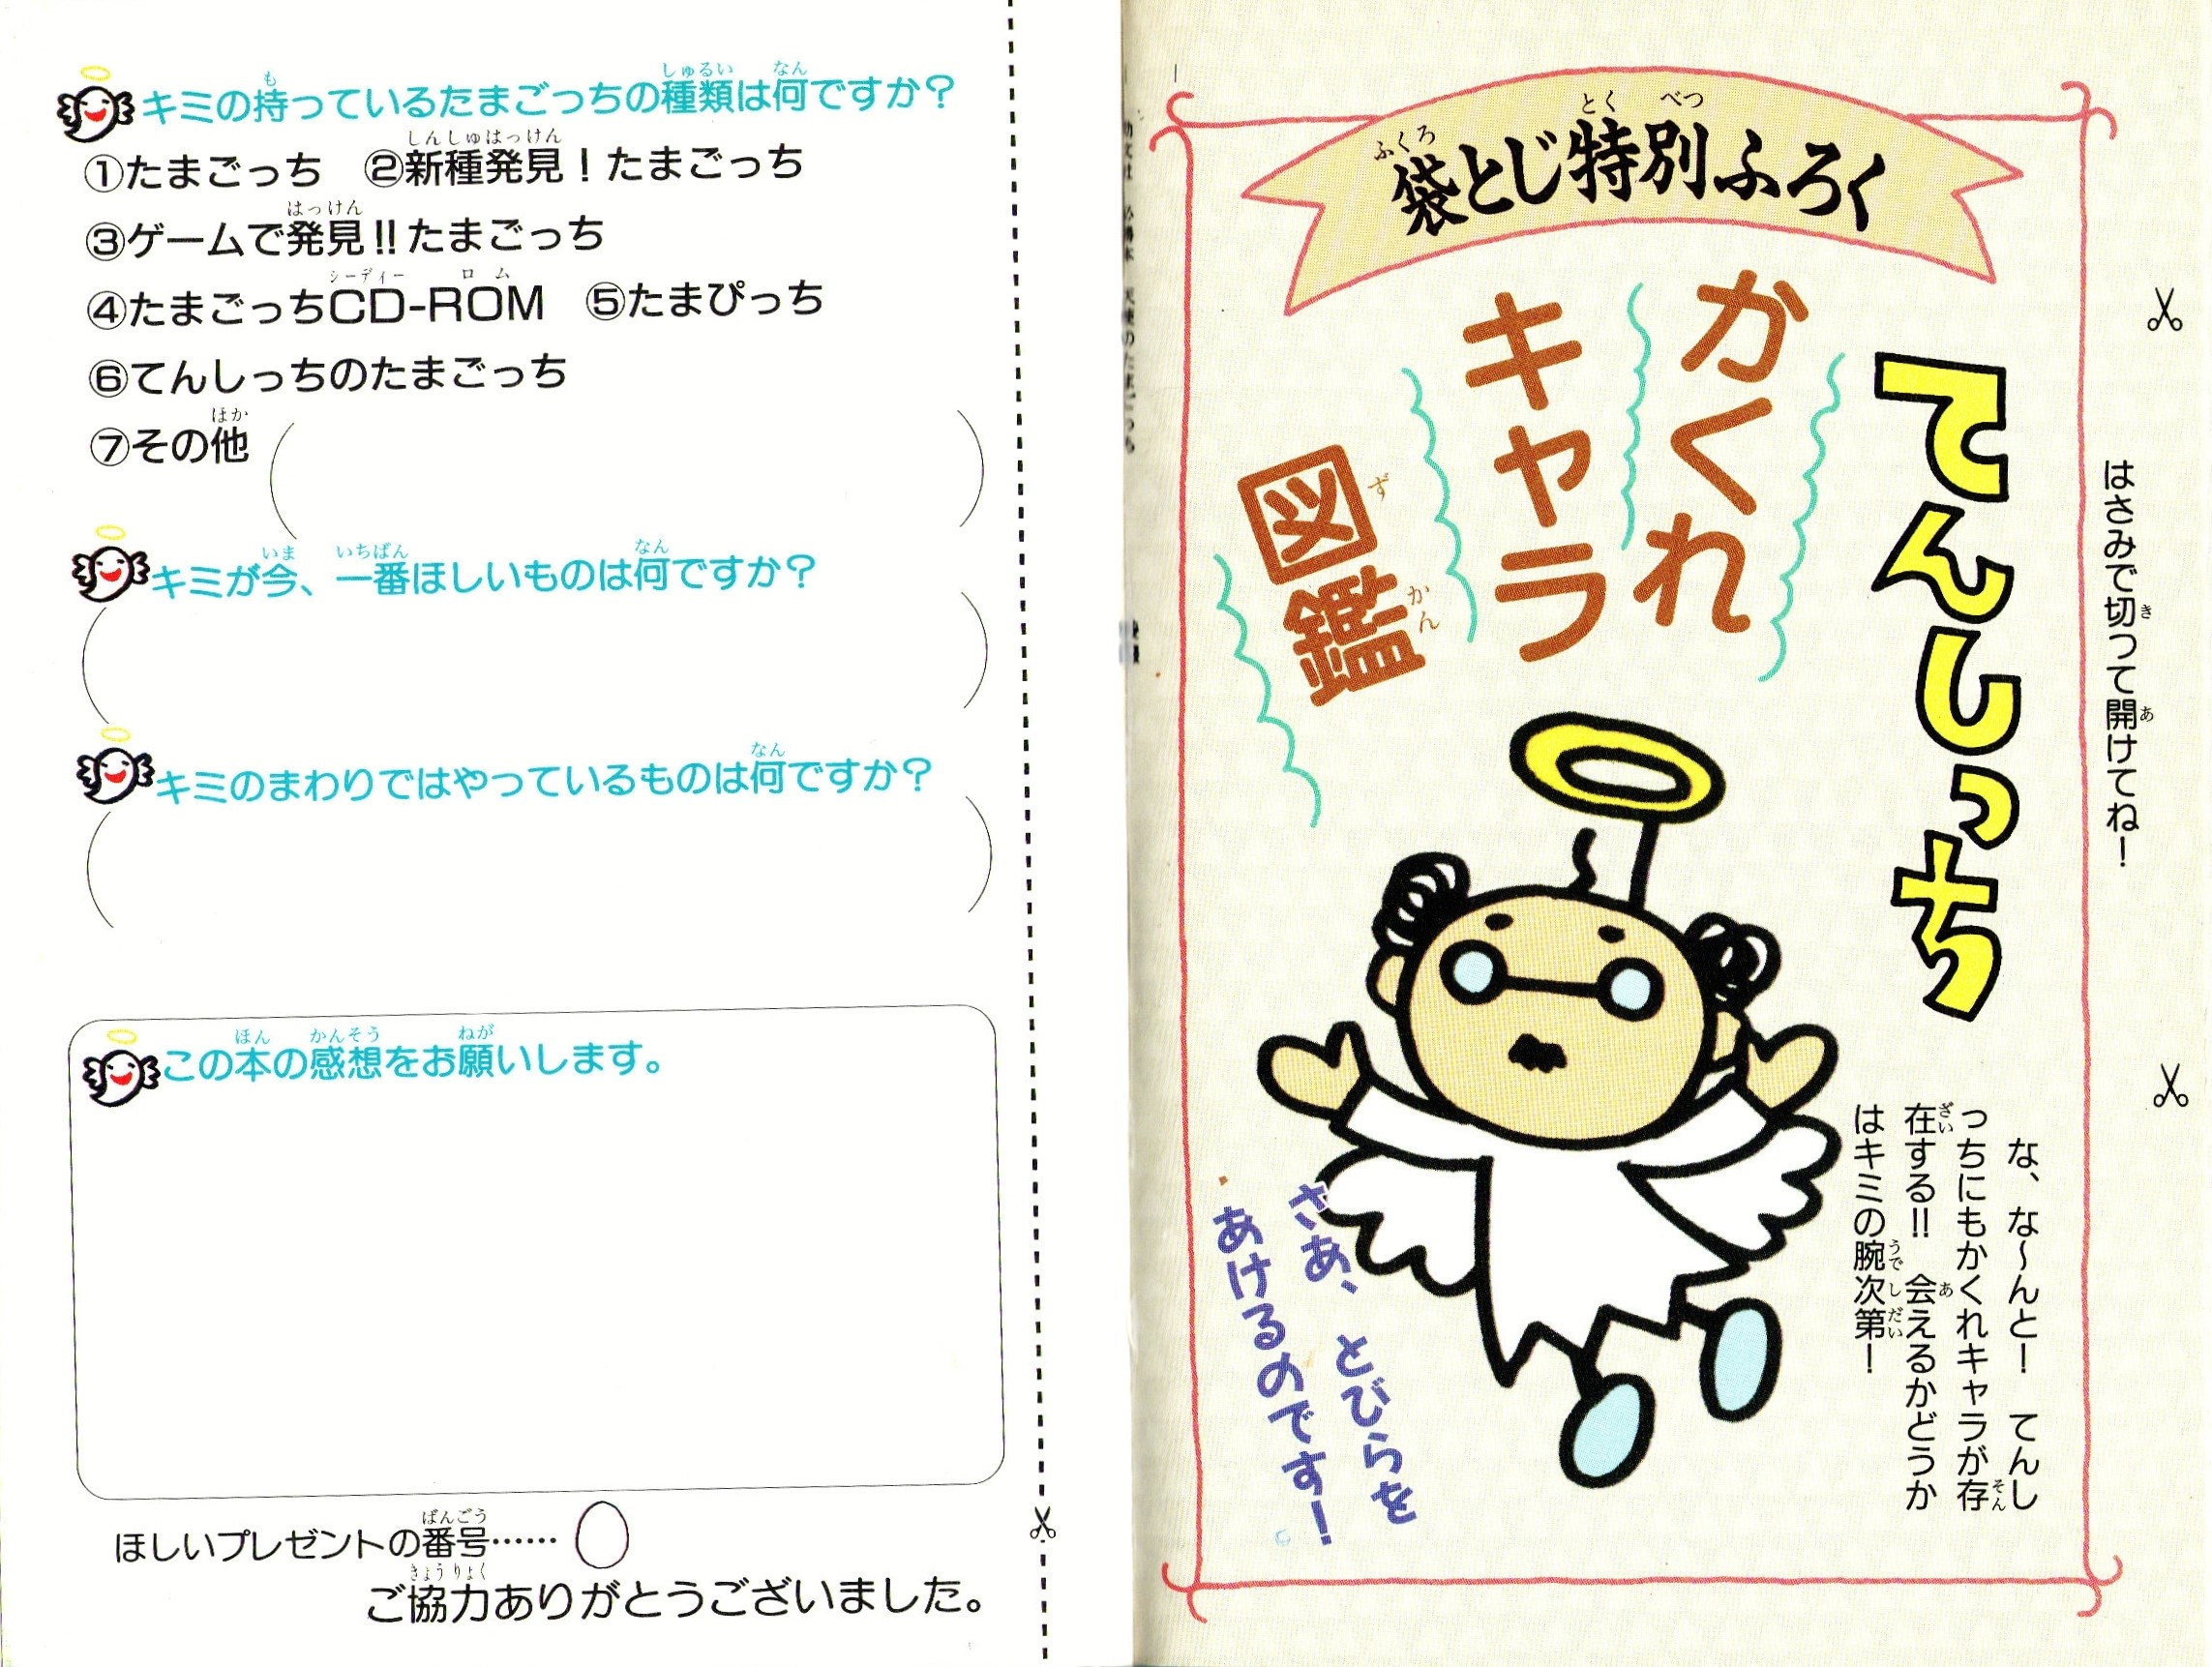 キミの持っているたまごっちの種類は何ですか？
①たまごっち　②新種発見！たまごっち
③ゲームで発見!!たまごっち
④たまごっちCD-ROM　⑤たまぴっち
⑥てんしっちのたまごっち
⑦その他
キミが今、一番ほしいものは何ですか？
キミのまわりではやっているものは何ですか？
この本の感想をお願いします。
ほしいプレゼントの番号……
ご協力ありがとうございました。
袋とじ特別ふろく
はさみで切って開けてね！
てんしっち
かくれ
キャラ
図鑑
な、な〜んと！　てんし
っちにもかくれキャラが存
在する!!　会えるかどうか
はキミの腕次第！
さあ、とびらを
あけるのです！